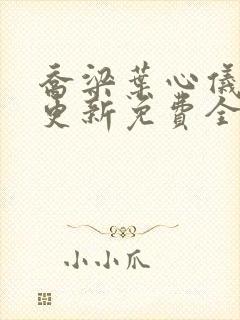 乔梁叶心仪
更新免费全
小小爪